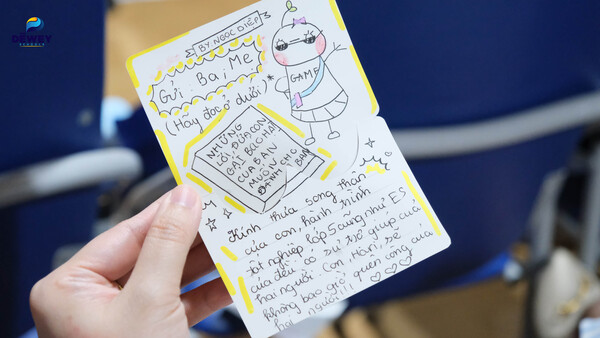 DEWEY
SCHOOLS
BY: NGỌC DIỆP
Gửi: Ba, Mẹ
(Hãy đọc ở dưới)
GAME
NHỮNG
LỜI ĐỨA CON
GÁI
CỦA BẠN
MUỐN
DÀNH CHO
BẠN
Kính thưa song thân
của con, hành trình
tốt nghiệp lớp 5 cũng như ES
của đều có sự trợ giúp của
hai người. Con, Hân, sẽ
không bao giờ quên công của
hai người!!!